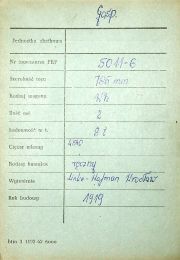 Gosp.
Jednostka służbowa
Nr inwentarza PKP 5011-6
Szerokość toru 785 mm
Rodzaj wagonu
Ilość osi 2
Ładowność w t. 8 t
Ciężar własny 4540
Rodzaj hamulca ręczny
Wytwórnia Linke-Hofman Wrocław
Rok budowy 1919